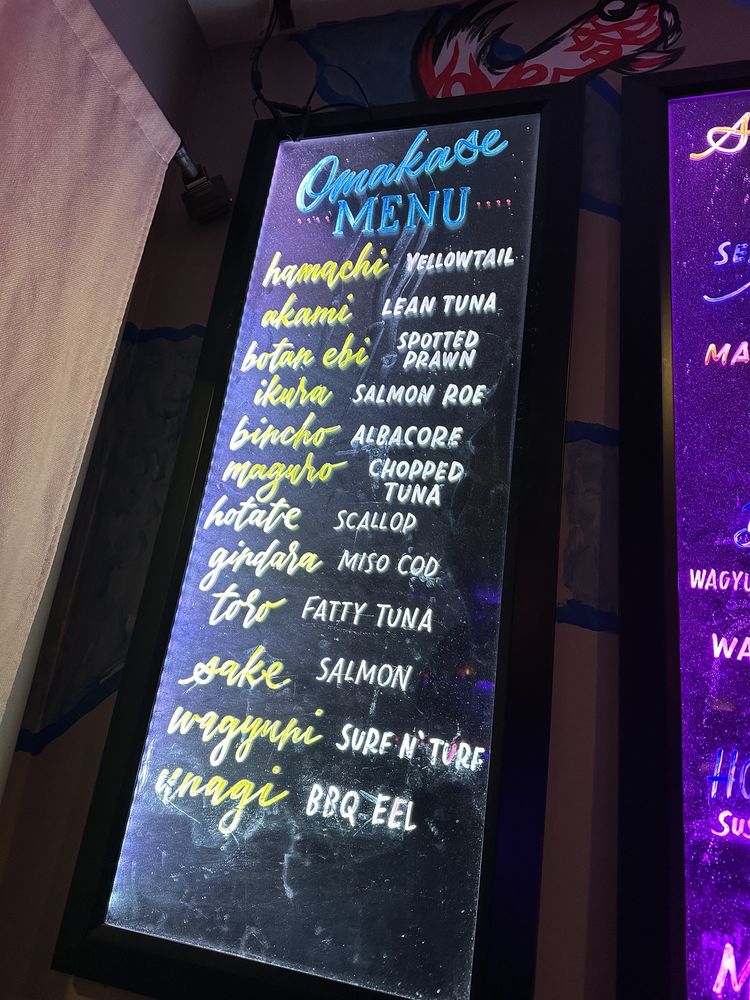 Omakase
MENU
hamachi YELLOWTAIL
akami LEAN TUNA
botan ebi SPOTTED PRAWN
ikura SALMON ROE
bincho ALBACORE
maguro CHOPPED TUNA
hotate SCALLOP
gindara MISO COD
toro FATTY TUNA
sake SALMON
wagyuni SURF N' TURF
unagi BBQ EEL
WAGYU